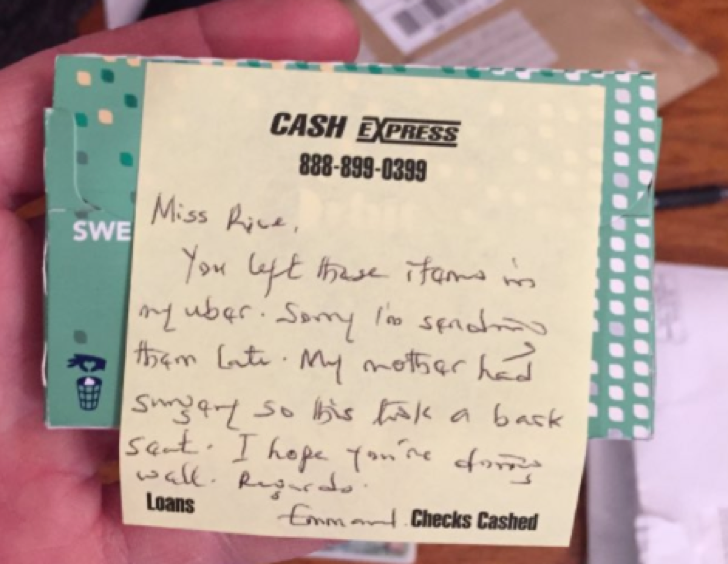 CASH EXPRESS
888-899-0399
Miss Rice,
You left these items in
my uber. Sorry I'm sending
them late. My mother had
surgery so this took a back
seat. I hope you're doing
well. Regards.
Emmanuel
Loans Checks Cashed
SWE